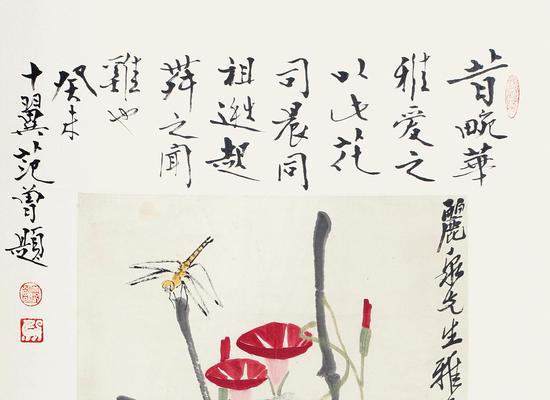 昔畹華
雅爱之
以此花
司晨同
祖逖起
舞之聞
雞也
癸未
十翼范曾題
麗泉先生雅